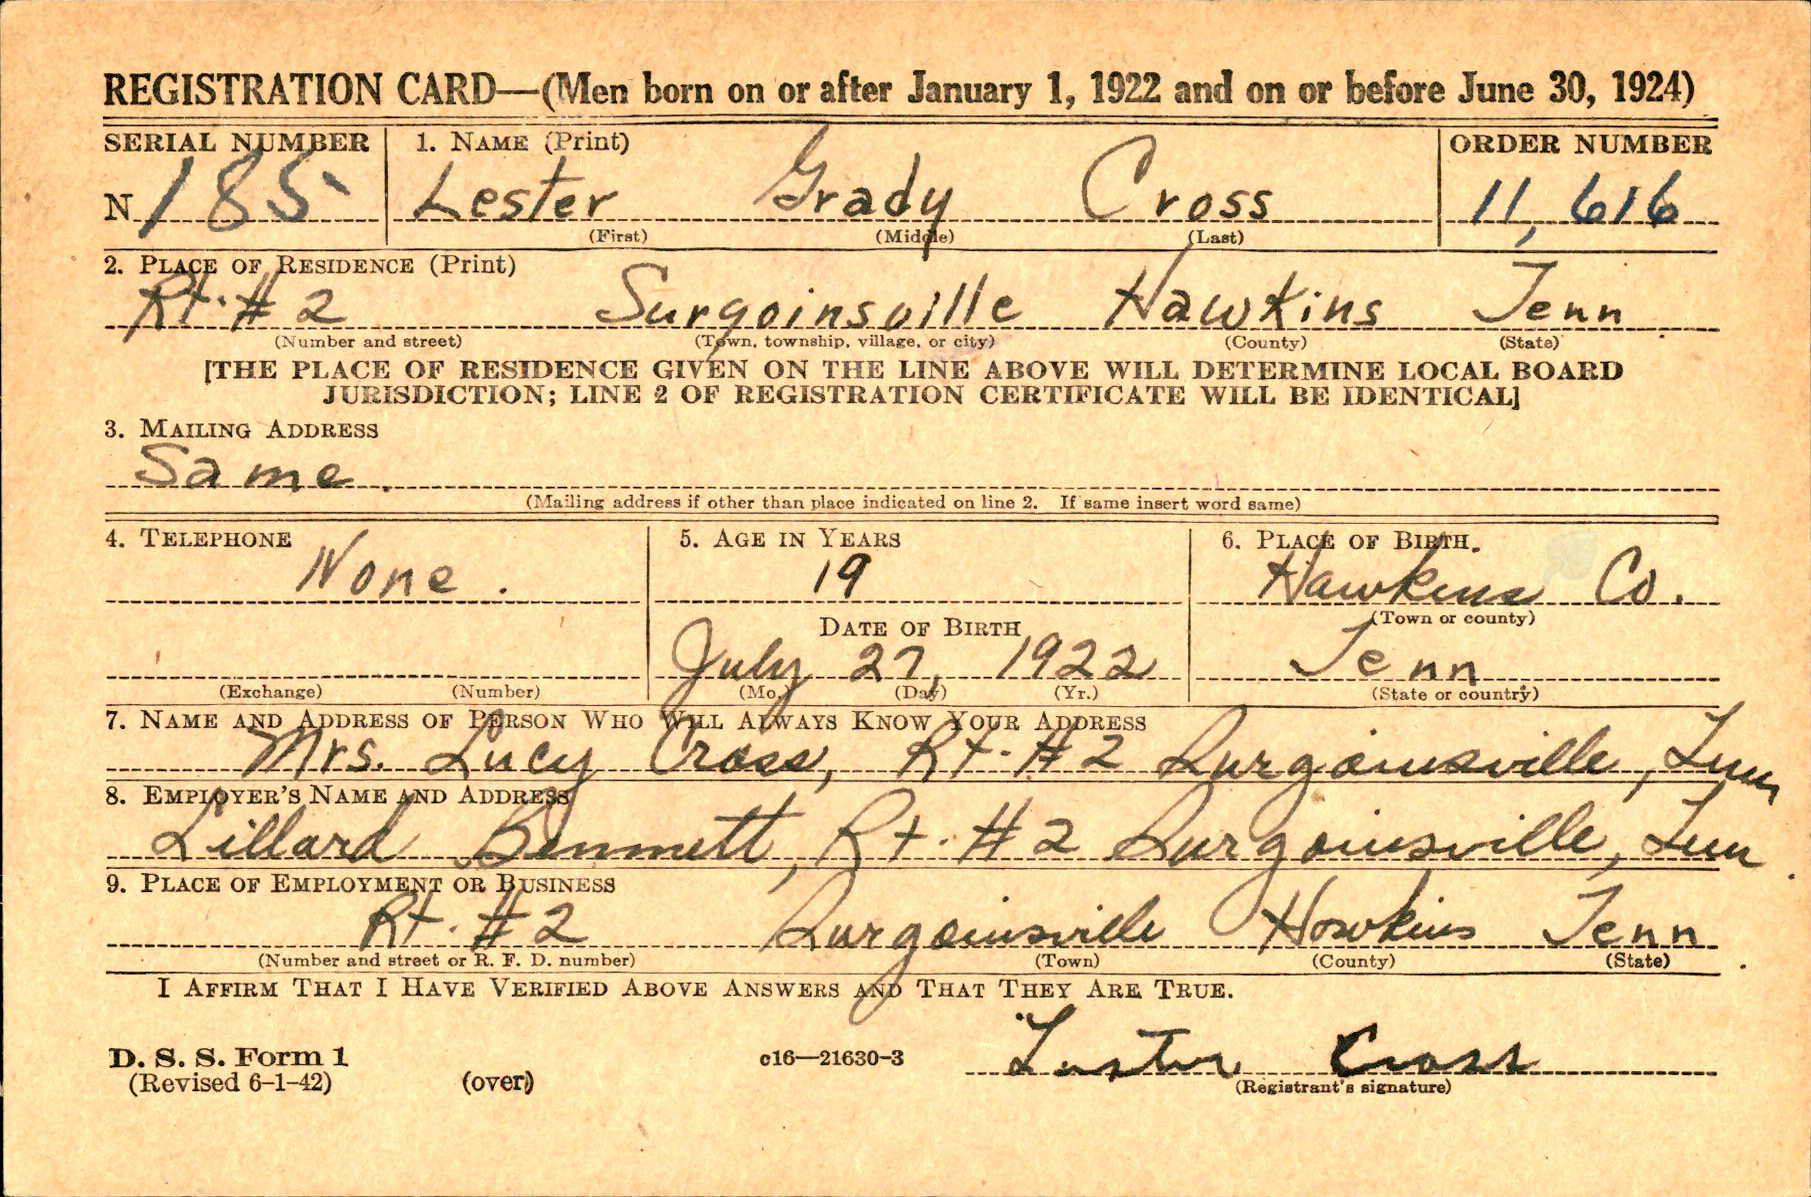 REGISTRATION CARD—(Men born on or after January 1, 1922 and on or before June 30, 1924)
SERIAL NUMBER 1. NAME (Print) ORDER NUMBER
N 185 Lester Grady Cross 11,616
(First) (Middle) (Last)
2. PLACE OF RESIDENCE (Print)
Rt. # 2 Surgoinsville Hawkins Tenn
(Number and street) (Town, township, village, or city) (County) (State)
[THE PLACE OF RESIDENCE GIVEN ON THE LINE ABOVE WILL DETERMINE LOCAL BOARD
JURISDICTION; LINE 2 OF REGISTRATION CERTIFICATE WILL BE IDENTICAL]
3. MAILING ADDRESS
Same.
(Mailing address if other than place indicated on line 2. If same insert word same)
4. TELEPHONE 5. AGE IN YEARS 6. PLACE OF BIRTH
None. 19 Hawkins Co.
(Town or county)
DATE OF BIRTH
July 27, 1922 Tenn
(Exchange) (Number) (Mo.) (Day) (Yr.) (State or country)
7. NAME AND ADDRESS OF PERSON WHO WILL ALWAYS KNOW YOUR ADDRESS
Mrs. Lucy Cross, Rt. # 2 Surgoinsville, Tenn
8. EMPLOYER'S NAME AND ADDRESS
Lillard Bennett, Rt. # 2 Surgoinsville, Tenn
9. PLACE OF EMPLOYMENT OR BUSINESS
Rt. # 2 Surgoinsville Hawkins Tenn
(Number and street or R. F. D. number) (Town) (County) (State)
I AFFIRM THAT I HAVE VERIFIED ABOVE ANSWERS AND THAT THEY ARE TRUE.
D. S. S. Form 1 c16—21630-3 Lester Cross
(Revised 6-1-42) (over) (Registrant's signature)